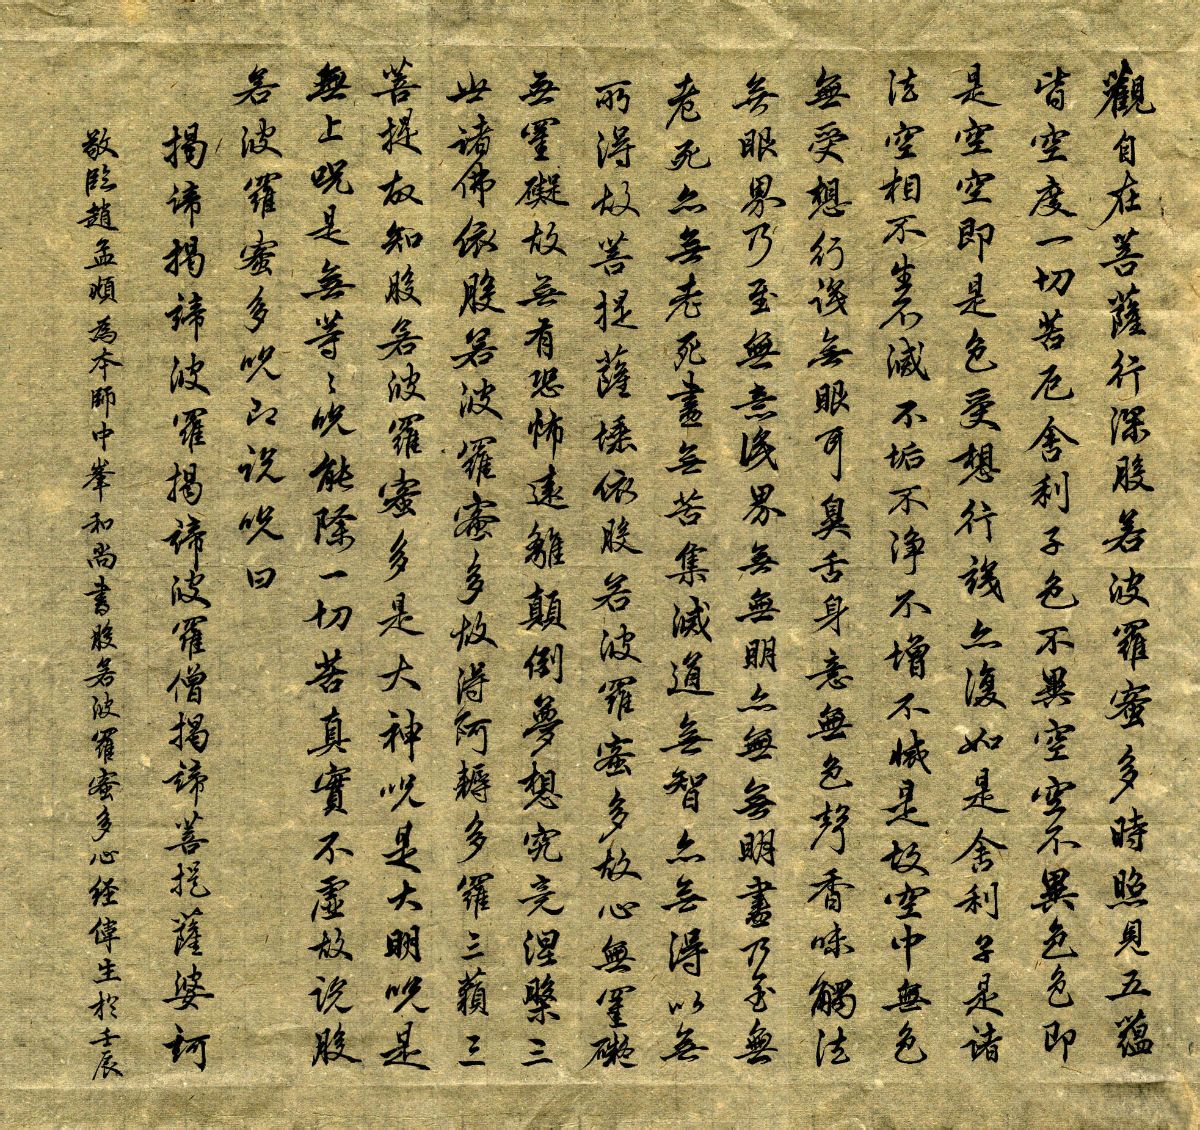 觀自在菩薩行深般若波羅蜜多時照見五蘊
皆空度一切苦厄舍利子色不異空空不異色色即
是空空即是色受想行識亦復如是舍利子是諸
法空相不生不滅不垢不淨不增不減是故空中無色
無受想行識無眼耳鼻舌身意無色聲香味觸法
無眼界乃至無意識界無無明亦無無明盡乃至無
老死亦無老死盡無苦集滅道無智亦無得以無
所得故菩提薩埵依般若波羅蜜多故心無罣礙
無罣礙故無有恐怖遠離顛倒夢想究竟涅槃三
世諸佛依般若波羅蜜多故得阿耨多羅三藐三
菩提故知般若波羅蜜多是大神呪是大明呪是
無上呪是無等〻呪能除一切苦真實不虛故說般
若波羅蜜多呪即說呪曰
揭諦揭諦波羅揭諦波羅僧揭諦菩提薩婆訶
敬臨趙孟頫為本師中峯和尚書般若波羅蜜多心經偉生於壬辰